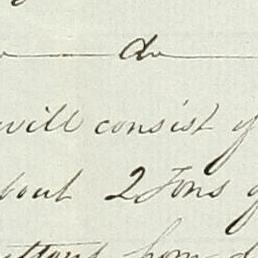 do
will consist of
about 2 Tons of